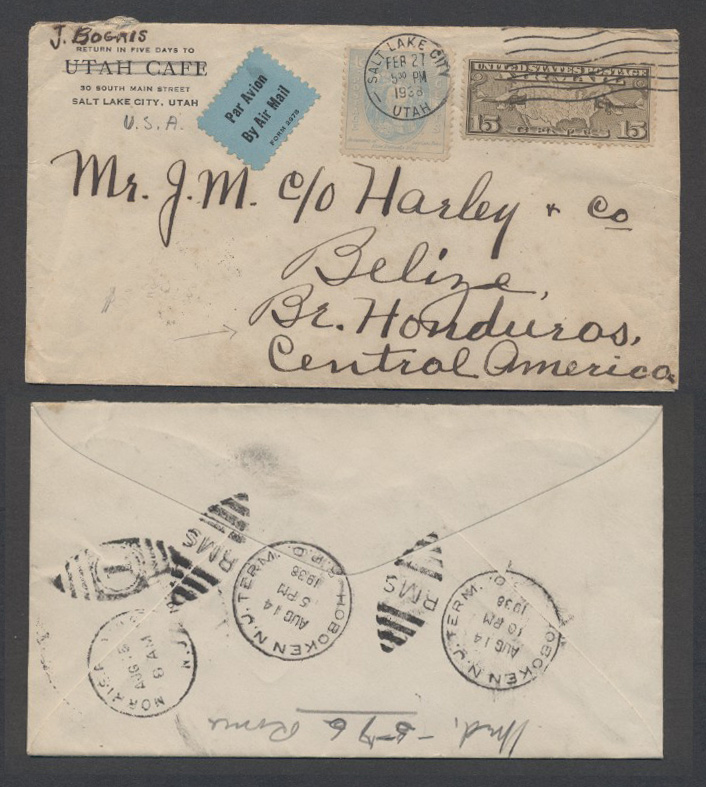 J. BOGRIS
RETURN IN FIVE DAYS TO
UTAH CAFE
30 SOUTH MAIN STREET
SALT LAKE CITY, UTAH
U.S.A.
Par Avion
By Air Mail
FORM 2978
SALT LAKE CITY
FEB 21
5 30 PM
1938
UTAH
UNITED STATES POSTAGE
15 15
Mr. J.M. c/o Harley & Co
Belize,
Br. Honduras,
Central America
RMS
HOBOKEN N.J. TERM. R.P.O.
AUG 14
5 PM
1938
RMS
HOBOKEN N.J. TERM.
AUG 14
10 PM
1938
AUG 15
AM